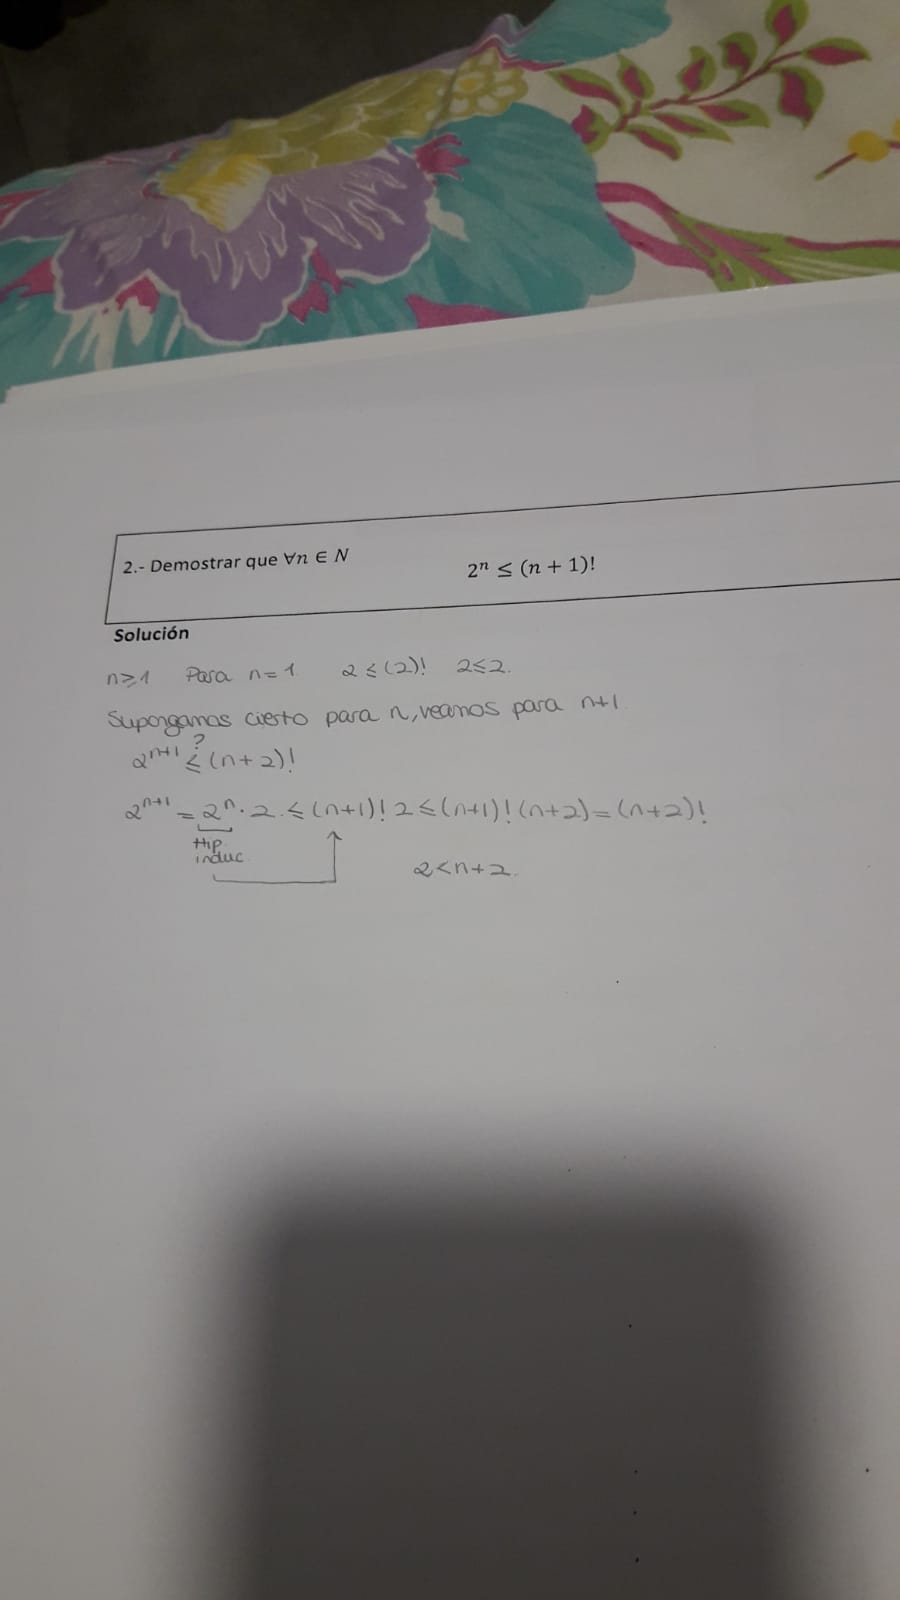 2.- Demostrar que ∀n ∈ N 2ⁿ ≤ (n + 1)!
Solución
n≥1 Para n=1 2≤(2)! 2≤2.
Supongamos cierto para n, veamos para n+1.
?
2ⁿ⁺¹ ≤ (n+2)!
2ⁿ⁺¹ = 2ⁿ·2 ≤ (n+1)! 2 ≤ (n+1)! (n+2) = (n+2)!
Hip.
induc
2<n+2.